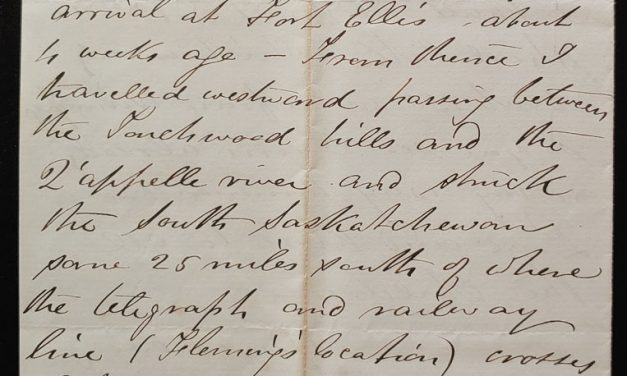 arrival at Fort Ellis about
4 weeks ago – From thence I
travelled westward passing between
the Touchwood hills and the
Q'appelle river and struck
the South Saskatchewan
some 25 miles south of where
the telegraph and railway
line (Fleming's location) crosses